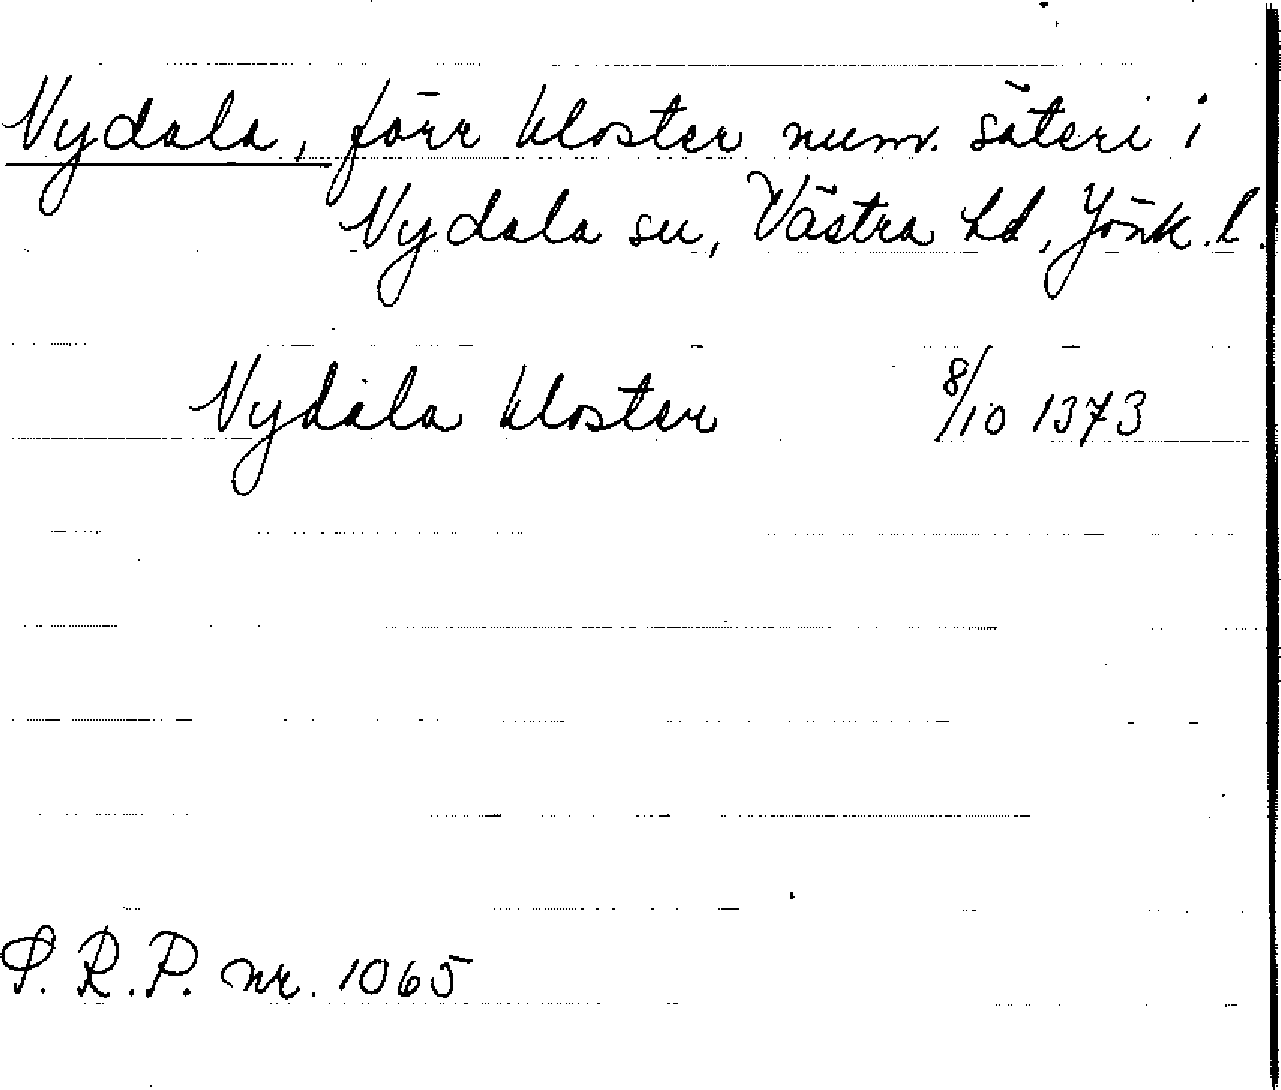 Nydala, förr kloster num. säteri i
Nydala sn, Västra hd, Jönk. l.
Nydala kloster 8/10 1373
S. R. P. nr. 1065